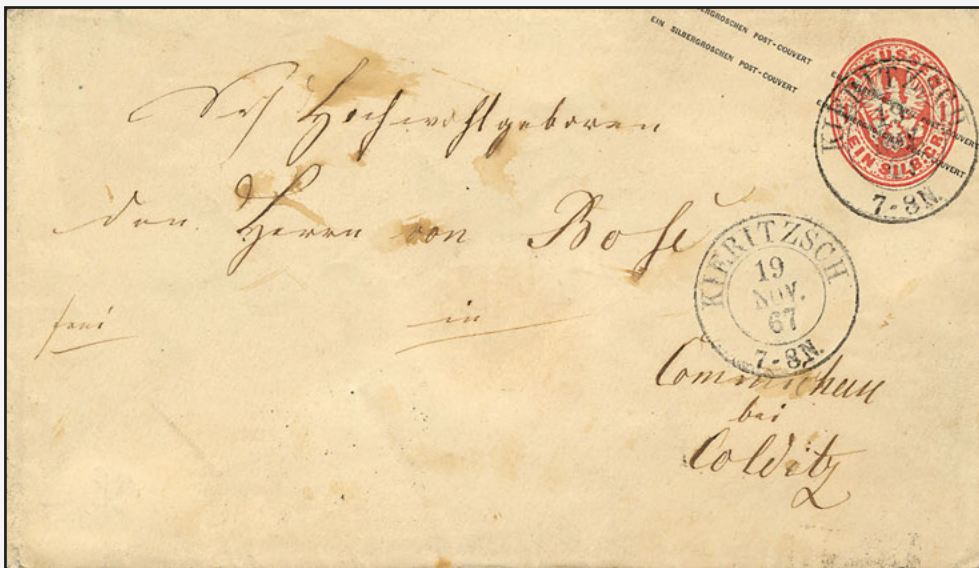 EIN SILBERGROSCHEN POST-COUVERT
EIN SILBERGROSCHEN POST-COUVERT
EIN SILB.GR.
KIERITZSCH
7-8N.
Hochwohlgeboren
den Herrn von Bose
KIERITZSCH
19
NOV.
67
7-8N.
frei
in
Commichau
bei
Colditz